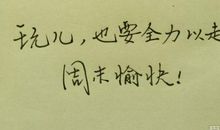 玩儿，也要全力以赴
周末愉快！